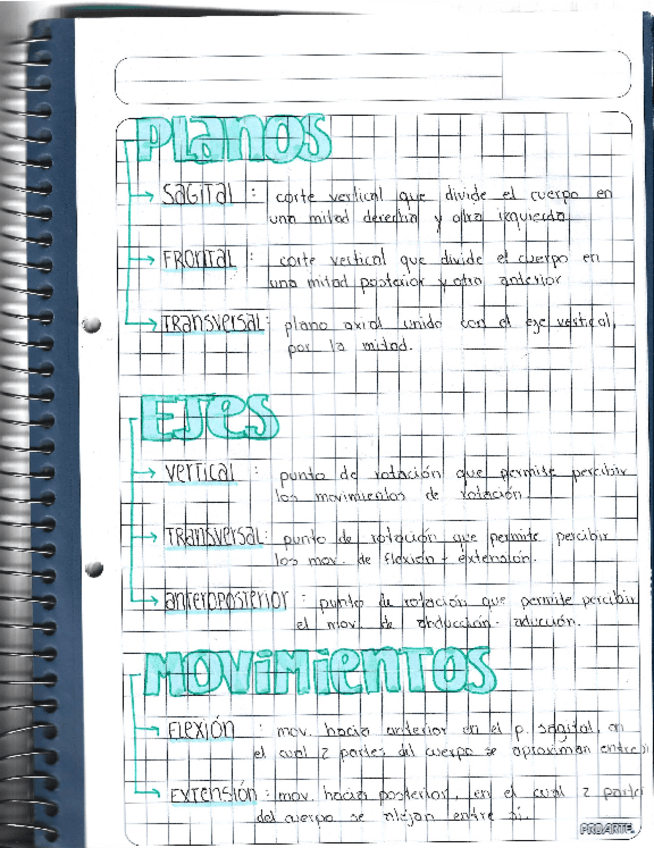 Planos
→ SAGITAL : corte vertical que divide el cuerpo en
una mitad derecha y otra izquierda
→ FRONTAL : corte vertical que divide el cuerpo en
una mitad posterior y otra anterior
→ TRANSVERSAL: plano axial unido con el eje vertical,
por la mitad.
EJES
→ VERTICAL : punto de rotación que permite percibir
los movimientos de rotación
→ TRANSVERSAL: punto de rotación que permite percibir
los mov. de flexión - extensión.
→ ANTEROPOSTERIOR : punto de rotación que permite percibir
el mov. de abducción - aducción.
MOVIMIENTOS
→ FLEXIÓN : mov. hacia anterior en el p. sagital, en
el cual 2 partes del cuerpo se aproximan entre si
→ EXTENSIÓN : mov. hacia posterior, en el cual 2 partes
del cuerpo se alejan entre si.
PROARTE